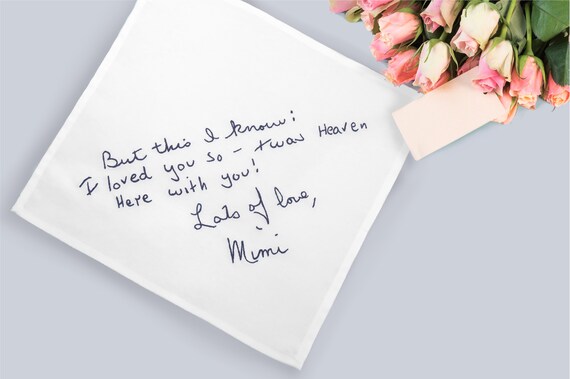 But this I know:
I loved you so - twas Heaven
Here with you!
Lots of love,
Mimi